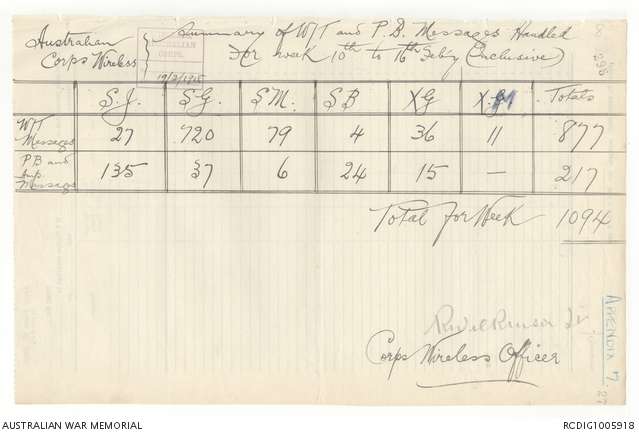 Australian
Corps Wireless
AUSTRALIAN
CORPS.
19/2/1918
Summary of W/T and P.B. Messages Handled
For week 10th to 16th Feb'y (Inclusive)
S.J. S.G. S.M. S B X G Totals
W/T
Messages 27 720 79 4 36 11 877
P B and
Messages 135 37 6 24 15 — 217
Total for Week 1094
Corps Wireless Officer
APPENDIX 7.
AUSTRALIAN WAR MEMORIAL
RCDIG1005918